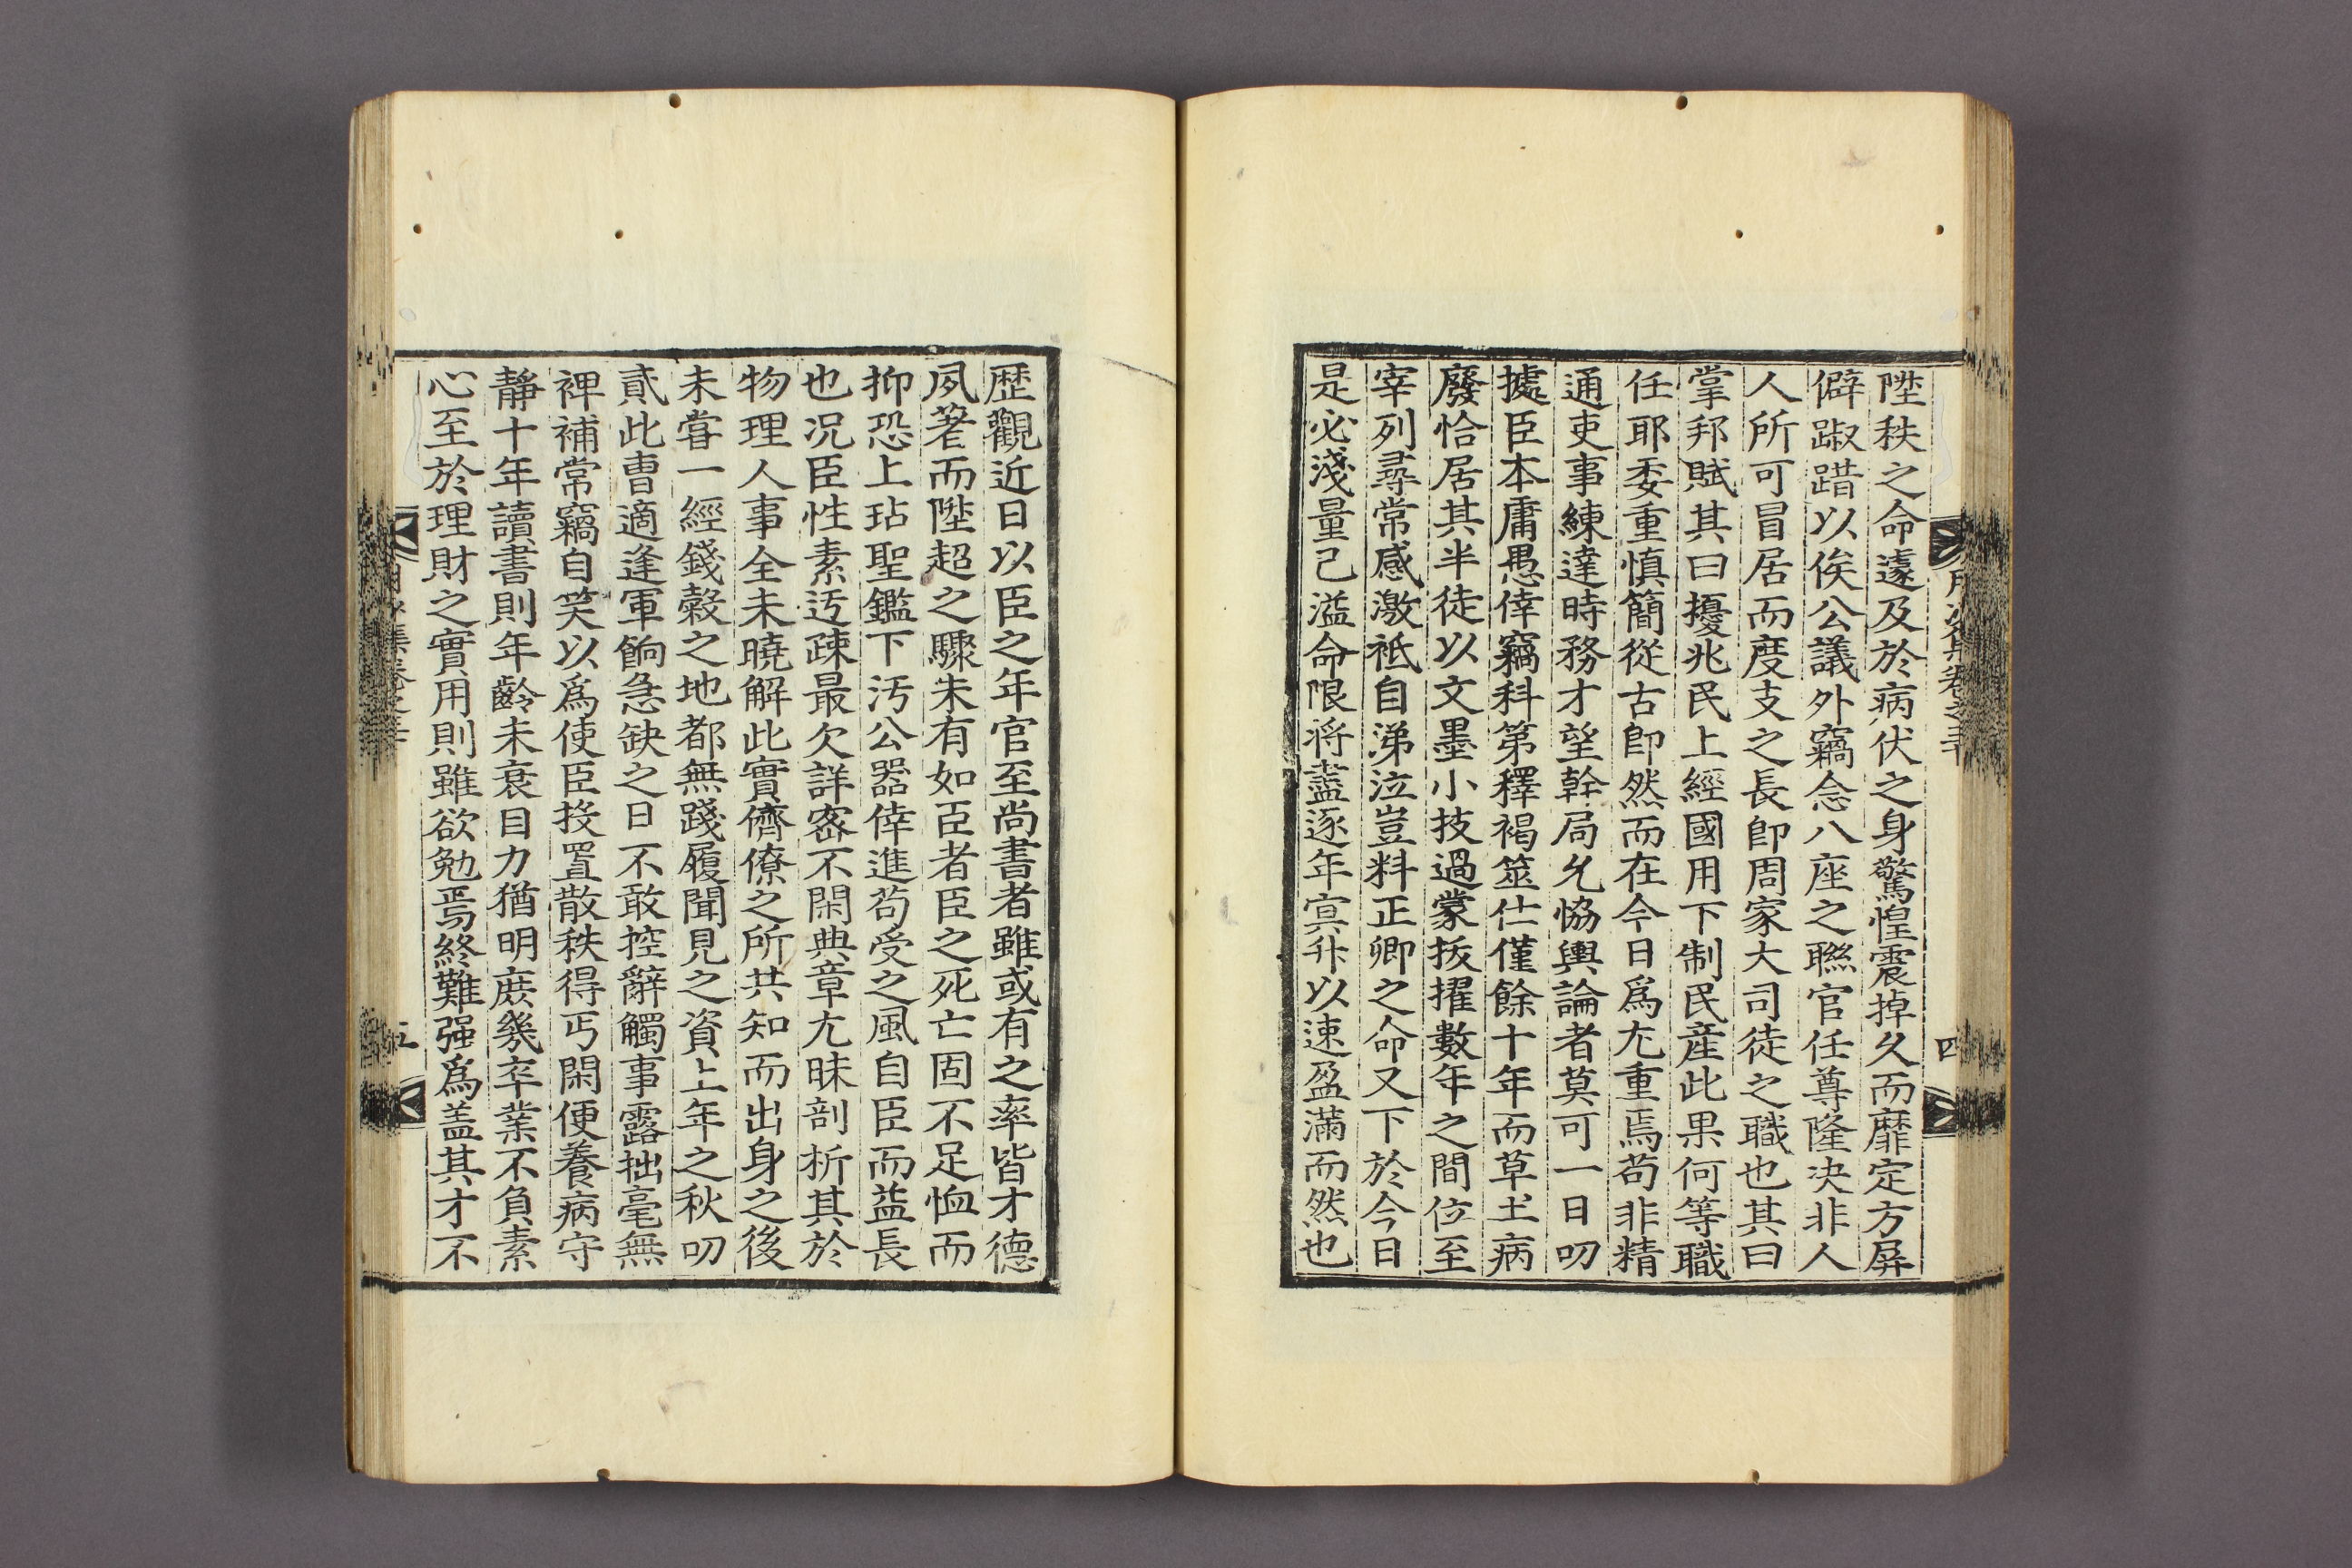 陞秩之命遽及於病伏之身驚惶震掉久而靡定方屏
僻踧踖以俟公議外竊念八座之聯官任尊隆決非人
人所可冒居而度支之長卽周家大司徒之職也其曰
掌邦賦其曰擾兆民上經國用下制民産此果何等職
任耶委重愼簡從古卽然而在今日爲尤重焉苟非精
通吏事練達時務才望幹局允恊輿論者莫可一日叨
據臣本庸愚倖竊科第釋褐筮仕僅餘十年而草土病
廢恰居其半徒以文墨小技過蒙拔擢數年之間位至
宰列尋常感激祗自涕泣豈料正卿之命又下於今日
是必淺量已溢命限將盡逐年冥升以速盈滿而然也
四
歷觀近日以臣之年官至尚書者雖或有之率皆才德
夙著而陞超之驟未有如臣者臣之死亡固不足恤而
抑恐上玷聖鑑下汚公器倖進苟受之風自臣而益長
也况臣性素迃疎最欠詳密不閑典章尤昧剖析其於
物理人事全未曉解此實儕僚之所共知而出身之後
未甞一經錢穀之地都無踐履聞見之資上年之秋叨
貳此曺適逢軍餉急缺之日不敢控辭觸事露拙毫無
裨補常竊自笑以爲使臣投置散秩得丐閑便養病守
靜十年讀書則年齡未衰目力猶明庶幾卒業不負素
心至於理財之實用則雖欲勉焉終難强爲盖其才不
五